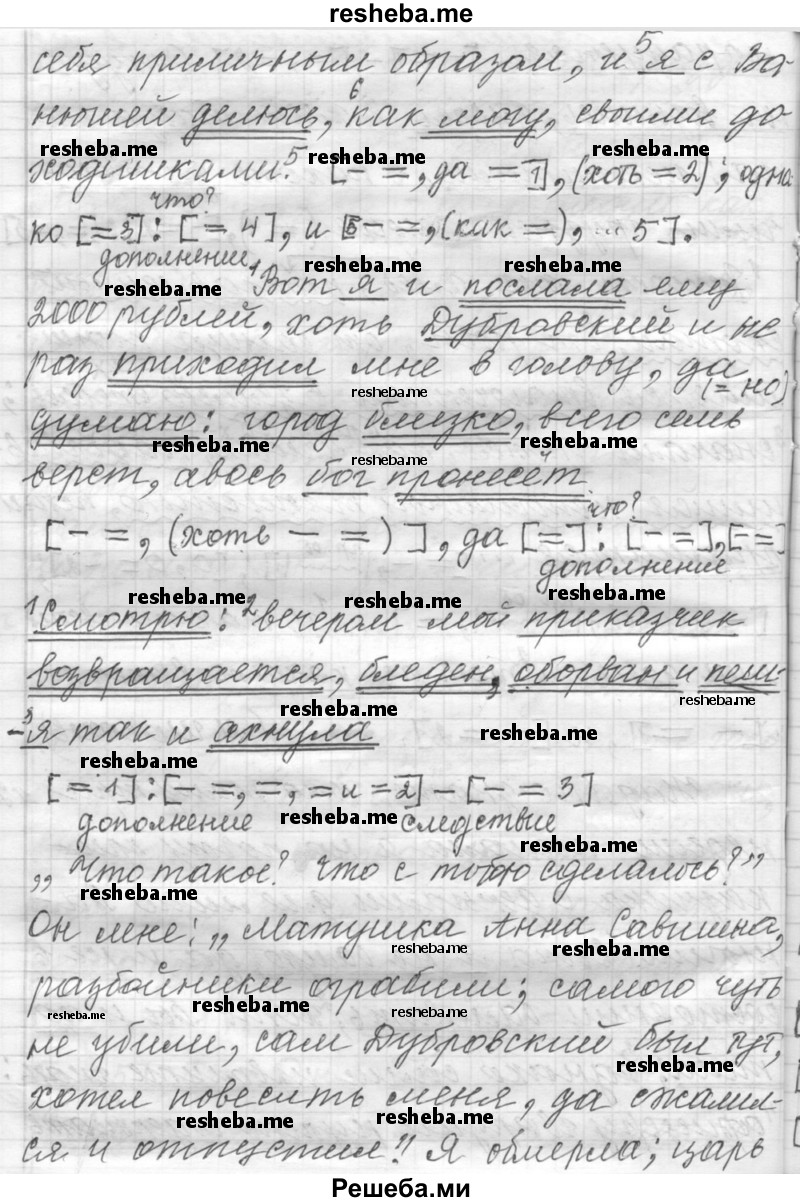 resheba.me
себя приличным образом, и 5 я с Ва-
нюшей делюсь, 6 как могу, своими до
resheba.me resheba.me resheba.me
ходишками. 5 [– =, да = 1], (хоть = 2); одна
что?
ко [= 3] : [– = 4], и [5 – =, (как =), ... 5].
дополнение resheba.me resheba.me
resheba.me 1 Вот я и послала ему
2000 рублей, хоть Дубровский и не
раз приходил мне в голову, да
resheba.me (= но)
думаю: город близко, всего семь
resheba.me resheba.me resheba.me
верст, авось 4 бог пронесёт
что?
[– =, (хоть – =)], да [=] : [– =], [– =]
дополнение
resheba.me resheba.me resheba.me
1 Смотрю: 2 вечером мой приказчик
возвращается, бледен, оборван и пеш-
resheba.me resheba.me
– 3 я так и ахнула resheba.me
resheba.me
[= 1] : [– =, =, = и = 2] – [– = 3]
дополнение resheba.me следствие
resheba.me
„Что такое? Что с тобою сделалось?”
resheba.me
Он мне: „Матушка Анна Савишна,
resheba.me resheba.me
разбойники ограбили; самого чуть
resheba.me resheba.me resheba.me
не убили, сам Дубровский был тут,
resheba.me
хотел повесить меня, да сжалил-
resheba.me resheba.me
ся и отпустил!! Я обмерла; царь
Решеба.ми